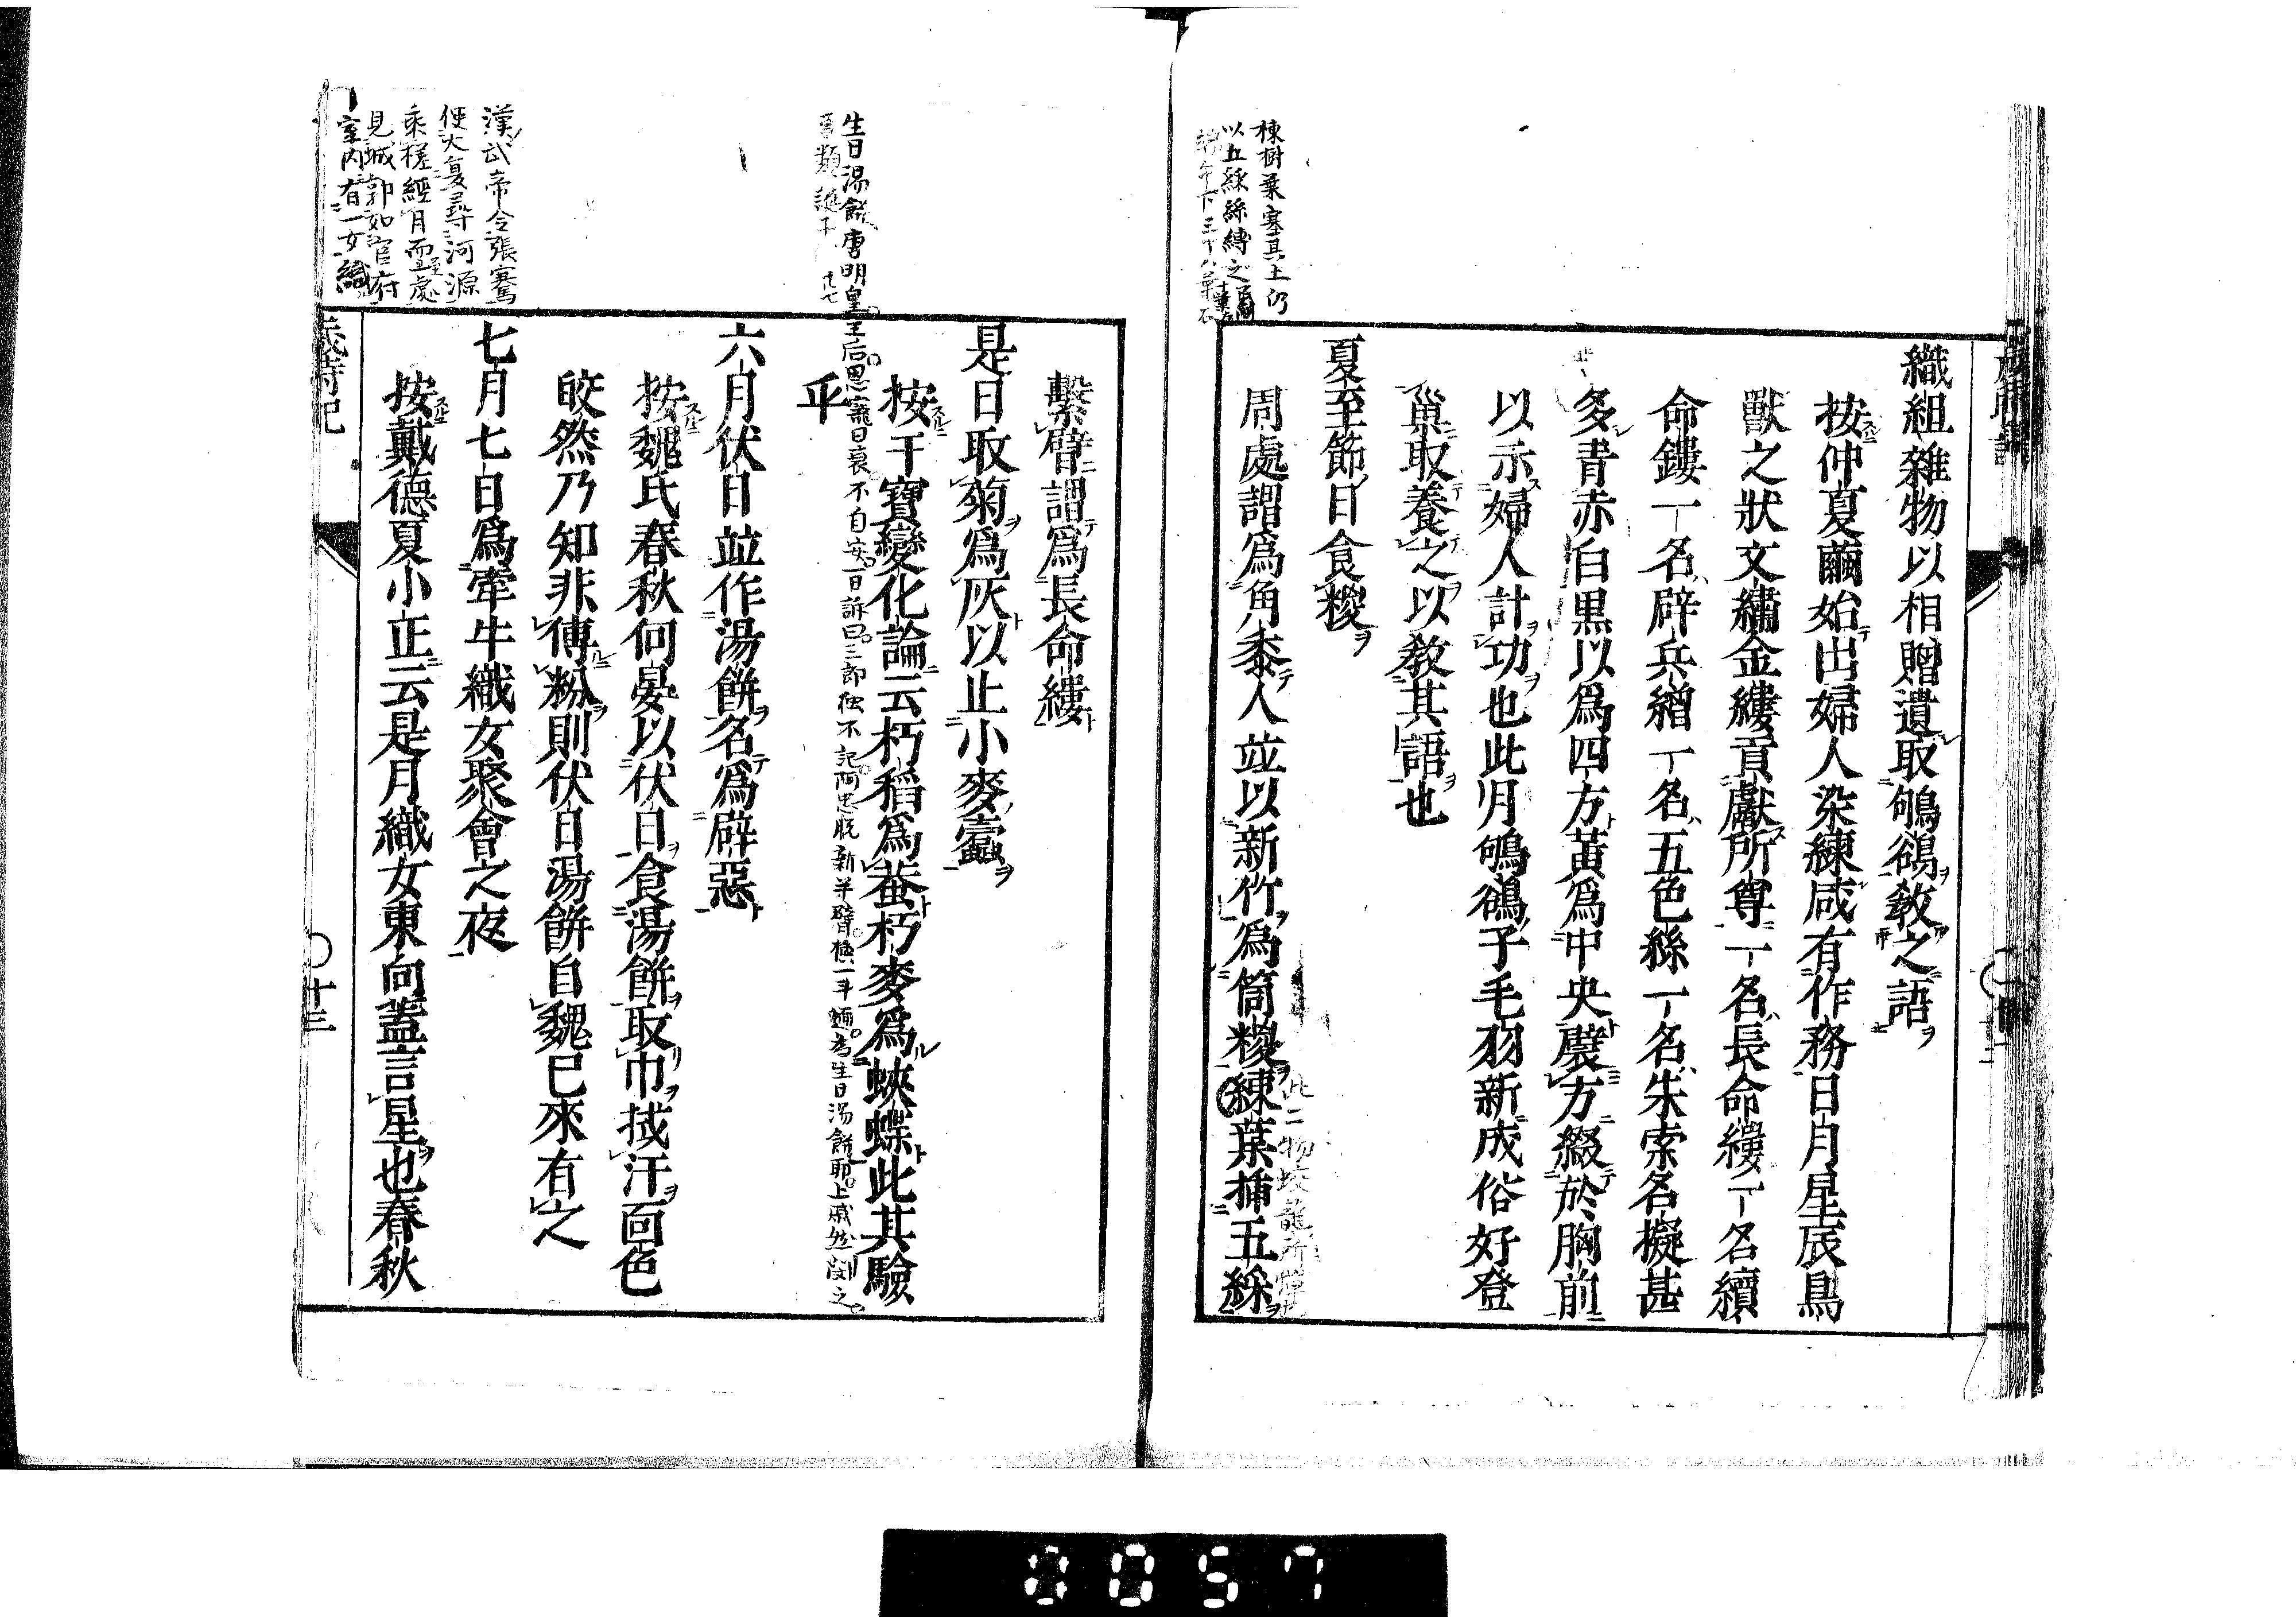 楝樹葉塞其上仍
以五綵絲縛之
織組雜物以相贈遺取鴝鵒教之語
按仲夏繭始出婦人染練咸有作務日月星辰鳥
獸之狀文繡金縷貢獻所尊一名長命縷一名續
命鏤一名辟兵繒一名五色絲一名朱索名擬甚
多青赤白黑以爲四方黄爲中央襞方綴於胸前
以示婦人計功也此月鴝鵒子毛羽新成俗好登
巢取養之以教其語也
夏至節日食糉
周處謂爲角黍人並以新竹爲筒糉練葉插五綵
此二物蛟龍所憚也
生日湯餅唐明皇王后恩寵日衰不自安一日訴曰三郎独不記阿忠脱新半臂換一斗麺為生日湯餅耶上戚然閔之
漢武帝令張騫
使大夏尋河源
乘槎經月而至一處
見城郭如官府
室内有一女織
繫臂謂爲長命縷
是日取菊爲灰以止小麥蠹
按干寶變化論云朽稻爲蛬朽麥爲蛺蝶此其驗
乎
六月伏日並作湯餅名爲辟惡
按魏氏春秋何晏以伏日食湯餅取巾拭汗面色
皎然乃知非傅粉則伏日湯餅自魏已來有之
七月七日爲牽牛織女聚會之夜
按戴德夏小正云是月織女東向蓋言星也春秋
歲時記
十三
0057